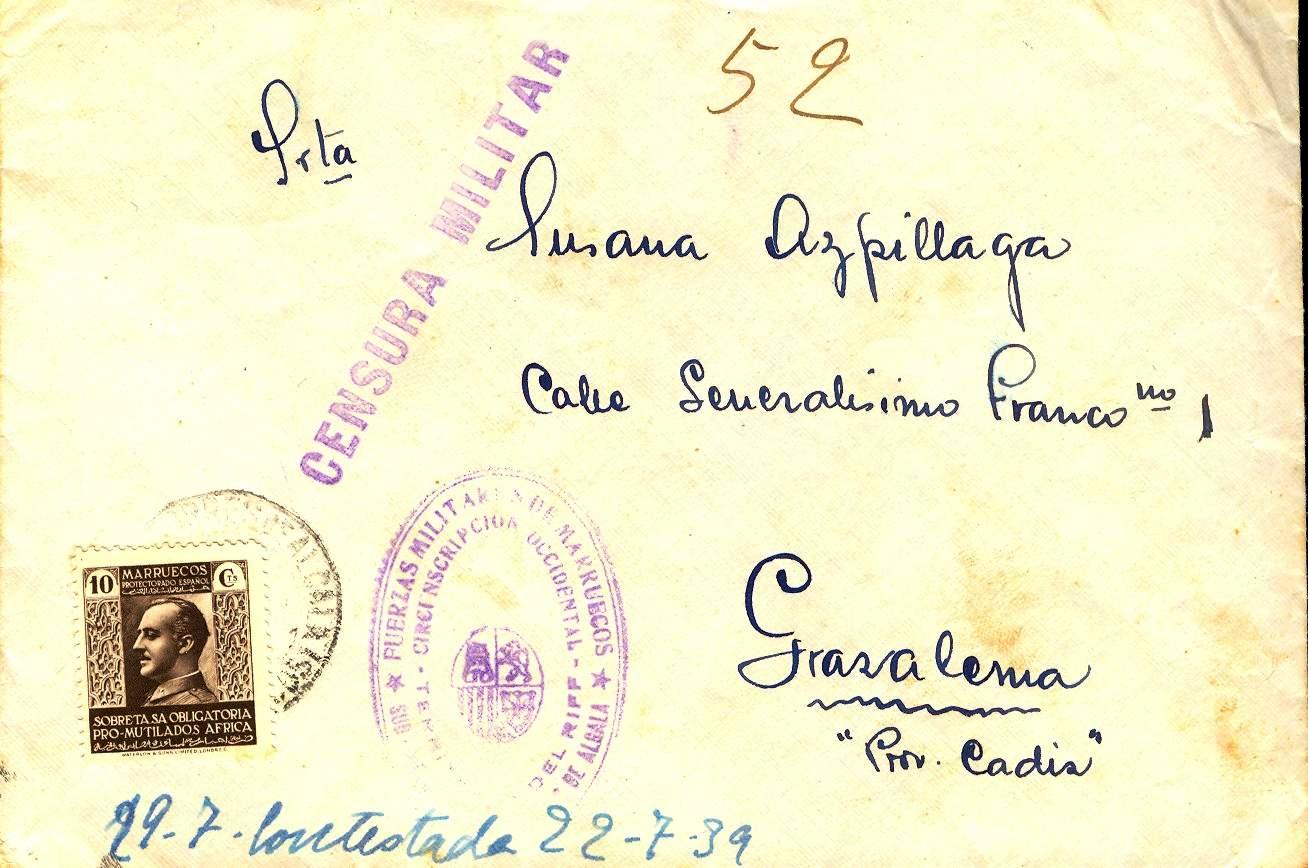 52
Srta
Susana Azpillaga
Calle Generalisimo Franco no 1
Grazalema
"Prov. Cadiz"
CENSURA MILITAR
★ FUERZAS MILITARES DE MARRUECOS ★
CIRCUNSCRIPCION OCCIDENTAL -
DEL RIFF -
DE ALBALA
10 MARRUECOS Cts
PROTECTORADO ESPAÑOL
SOBRETASA OBLIGATORIA
PRO-MUTILADOS AFRICA
WATERLOW & SONS LIMITED, LONDRES.
19-7. Contestada 22-7-39